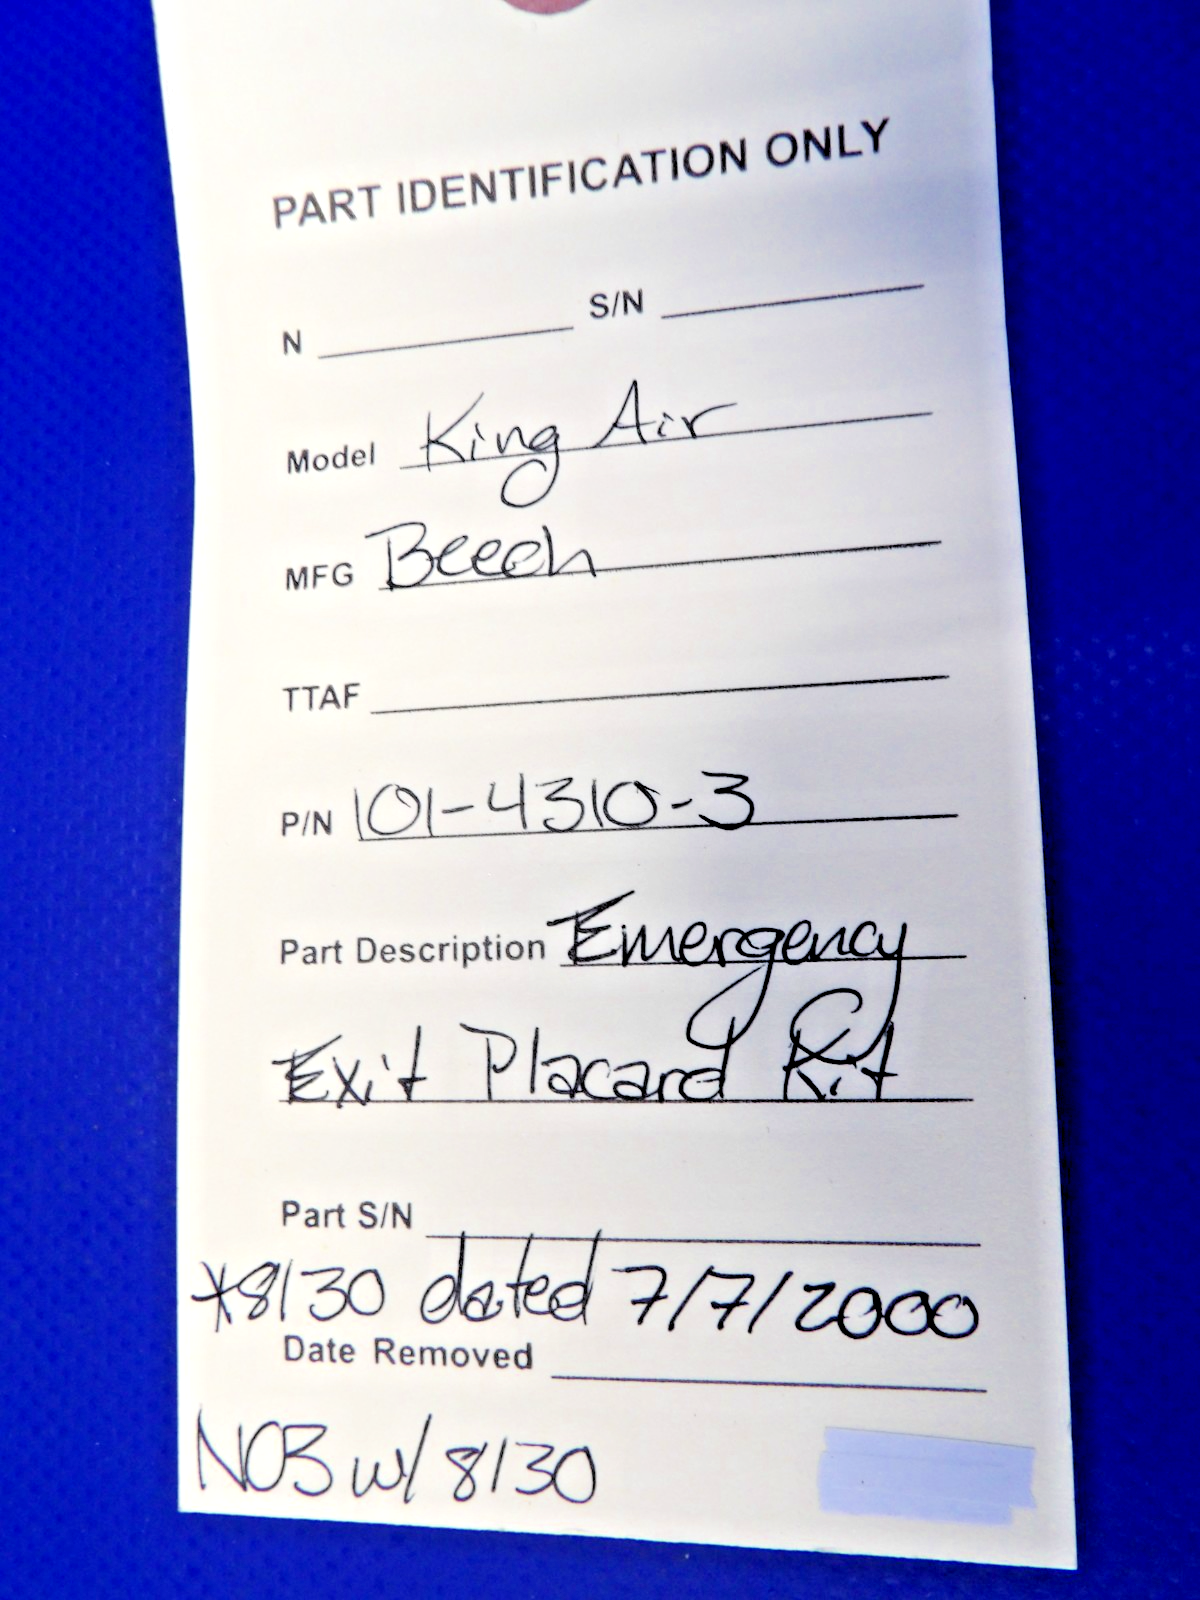 PART IDENTIFICATION ONLY
N S/N
Model King Air
MFG Beech
TTAF
P/N 101-4310-3
Part Description Emergency
Exit Placard Kit
Part S/N
*8130 dated 7/7/2000
Date Removed
NOB w/ 8130